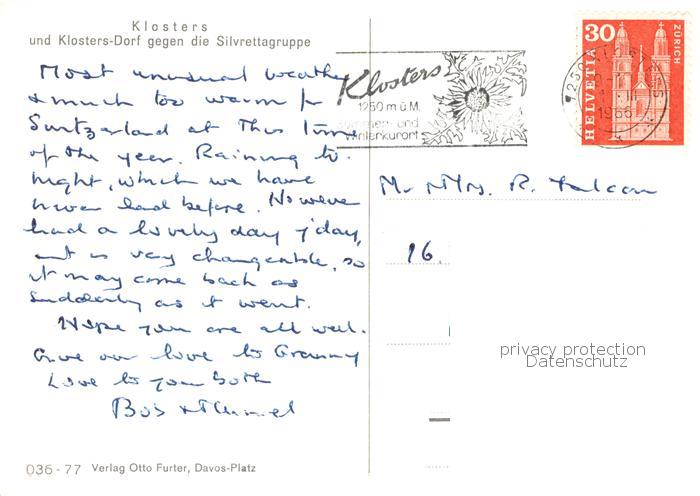 Klosters
und Klosters-Dorf gegen die Silvrettagruppe
Most unusual weather
& much too warm for
Switzerland at this time
of the year. Raining to-
night, which we have
never had before. However
had a lovely day y'day,
but is very changeable, so
it may come back as
suddenly as it went.
Hope you are all well.
Give our love to Granny
Love to you both
Bob &
036 - 77 Verlag Otto Furter, Davos-Platz
Klosters
1250 m ü.M.
Sommer- und
Winterkurort
30
HELVETIA
ZÜRICH
1966
Mr & Mrs. R. Falcon
16.
privacy protection
Datenschutz